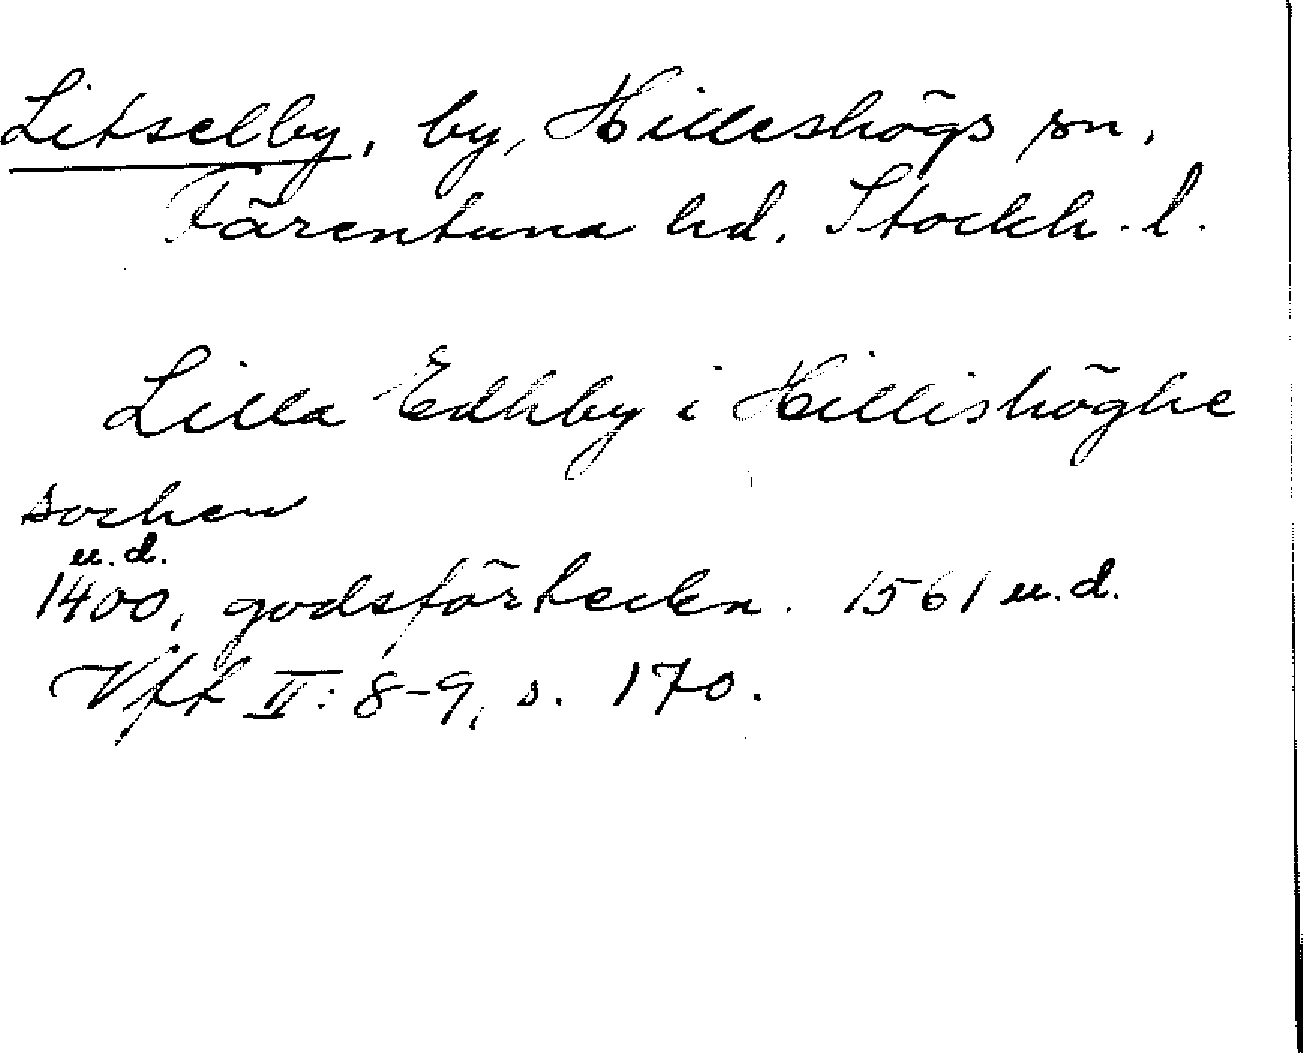 Litselby, by, Hilleshögs sn,
Färentuna hd. Stockh. l.
Lilla Edhby i Hillishöghe
sochen
u.d.
1400, godsförteckn. 1561 u.d.
Vft II: 8-9, s. 170.